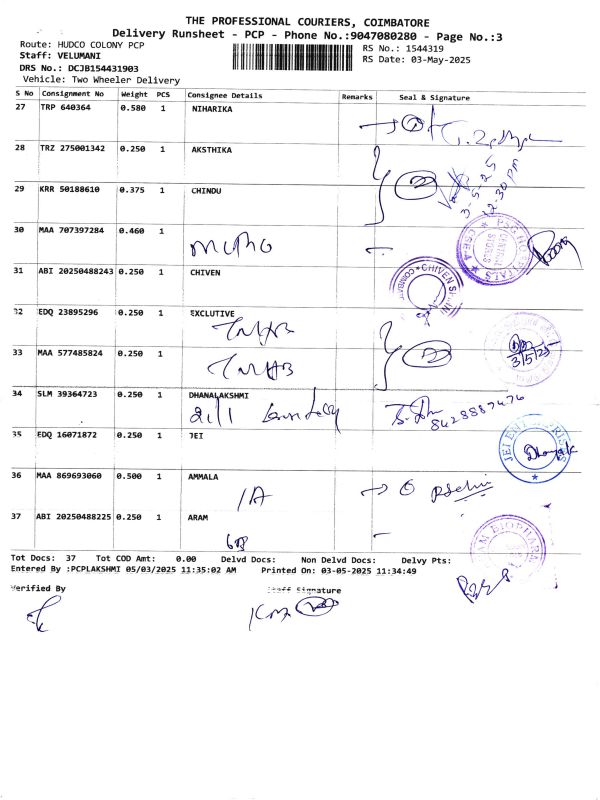 THE PROFESSIONAL COURIERS, COIMBATORE
Delivery Runsheet - PCP - Phone No.:9047080280 - Page No.:3
Route: HUDCO COLONY PCP
RS No.: 1544319
Staff: VELUMANI
RS Date: 03-May-2025
DRS No.: DCJB154431903
Vehicle: Two Wheeler Delivery
S No Consignment No Weight PCS Consignee Details Remarks Seal & Signature
27 TRP 640364 0.580 1 NIHARIKA
28 TRZ 275001342 0.250 1 AKSTHIKA
3-5-25
12.30 PM
29 KRR 50188610 0.375 1 CHINDU
30 MAA 707397284 0.460 1
31 ABI 20250488243 0.250 1 CHIVEN
32 EDQ 23895296 0.250 1 EXCLUTIVE
33 MAA 577485824 0.250 1
3/5/25
34 SLM 39364723 0.250 1 DHANALAKSHMI
8428887476
35 EDQ 16071872 0.250 1 JEI
36 MAA 869693060 0.500 1 AMMALA
1A
37 ABI 20250488225 0.250 1 ARAM
Tot Docs: 37 Tot COD Amt: 0.00 Delvd Docs: Non Delvd Docs: Delvy Pts:
Entered By :PCPLAKSHMI 05/03/2025 11:35:02 AM Printed On: 03-05-2025 11:34:49
Verified By Staff Signature